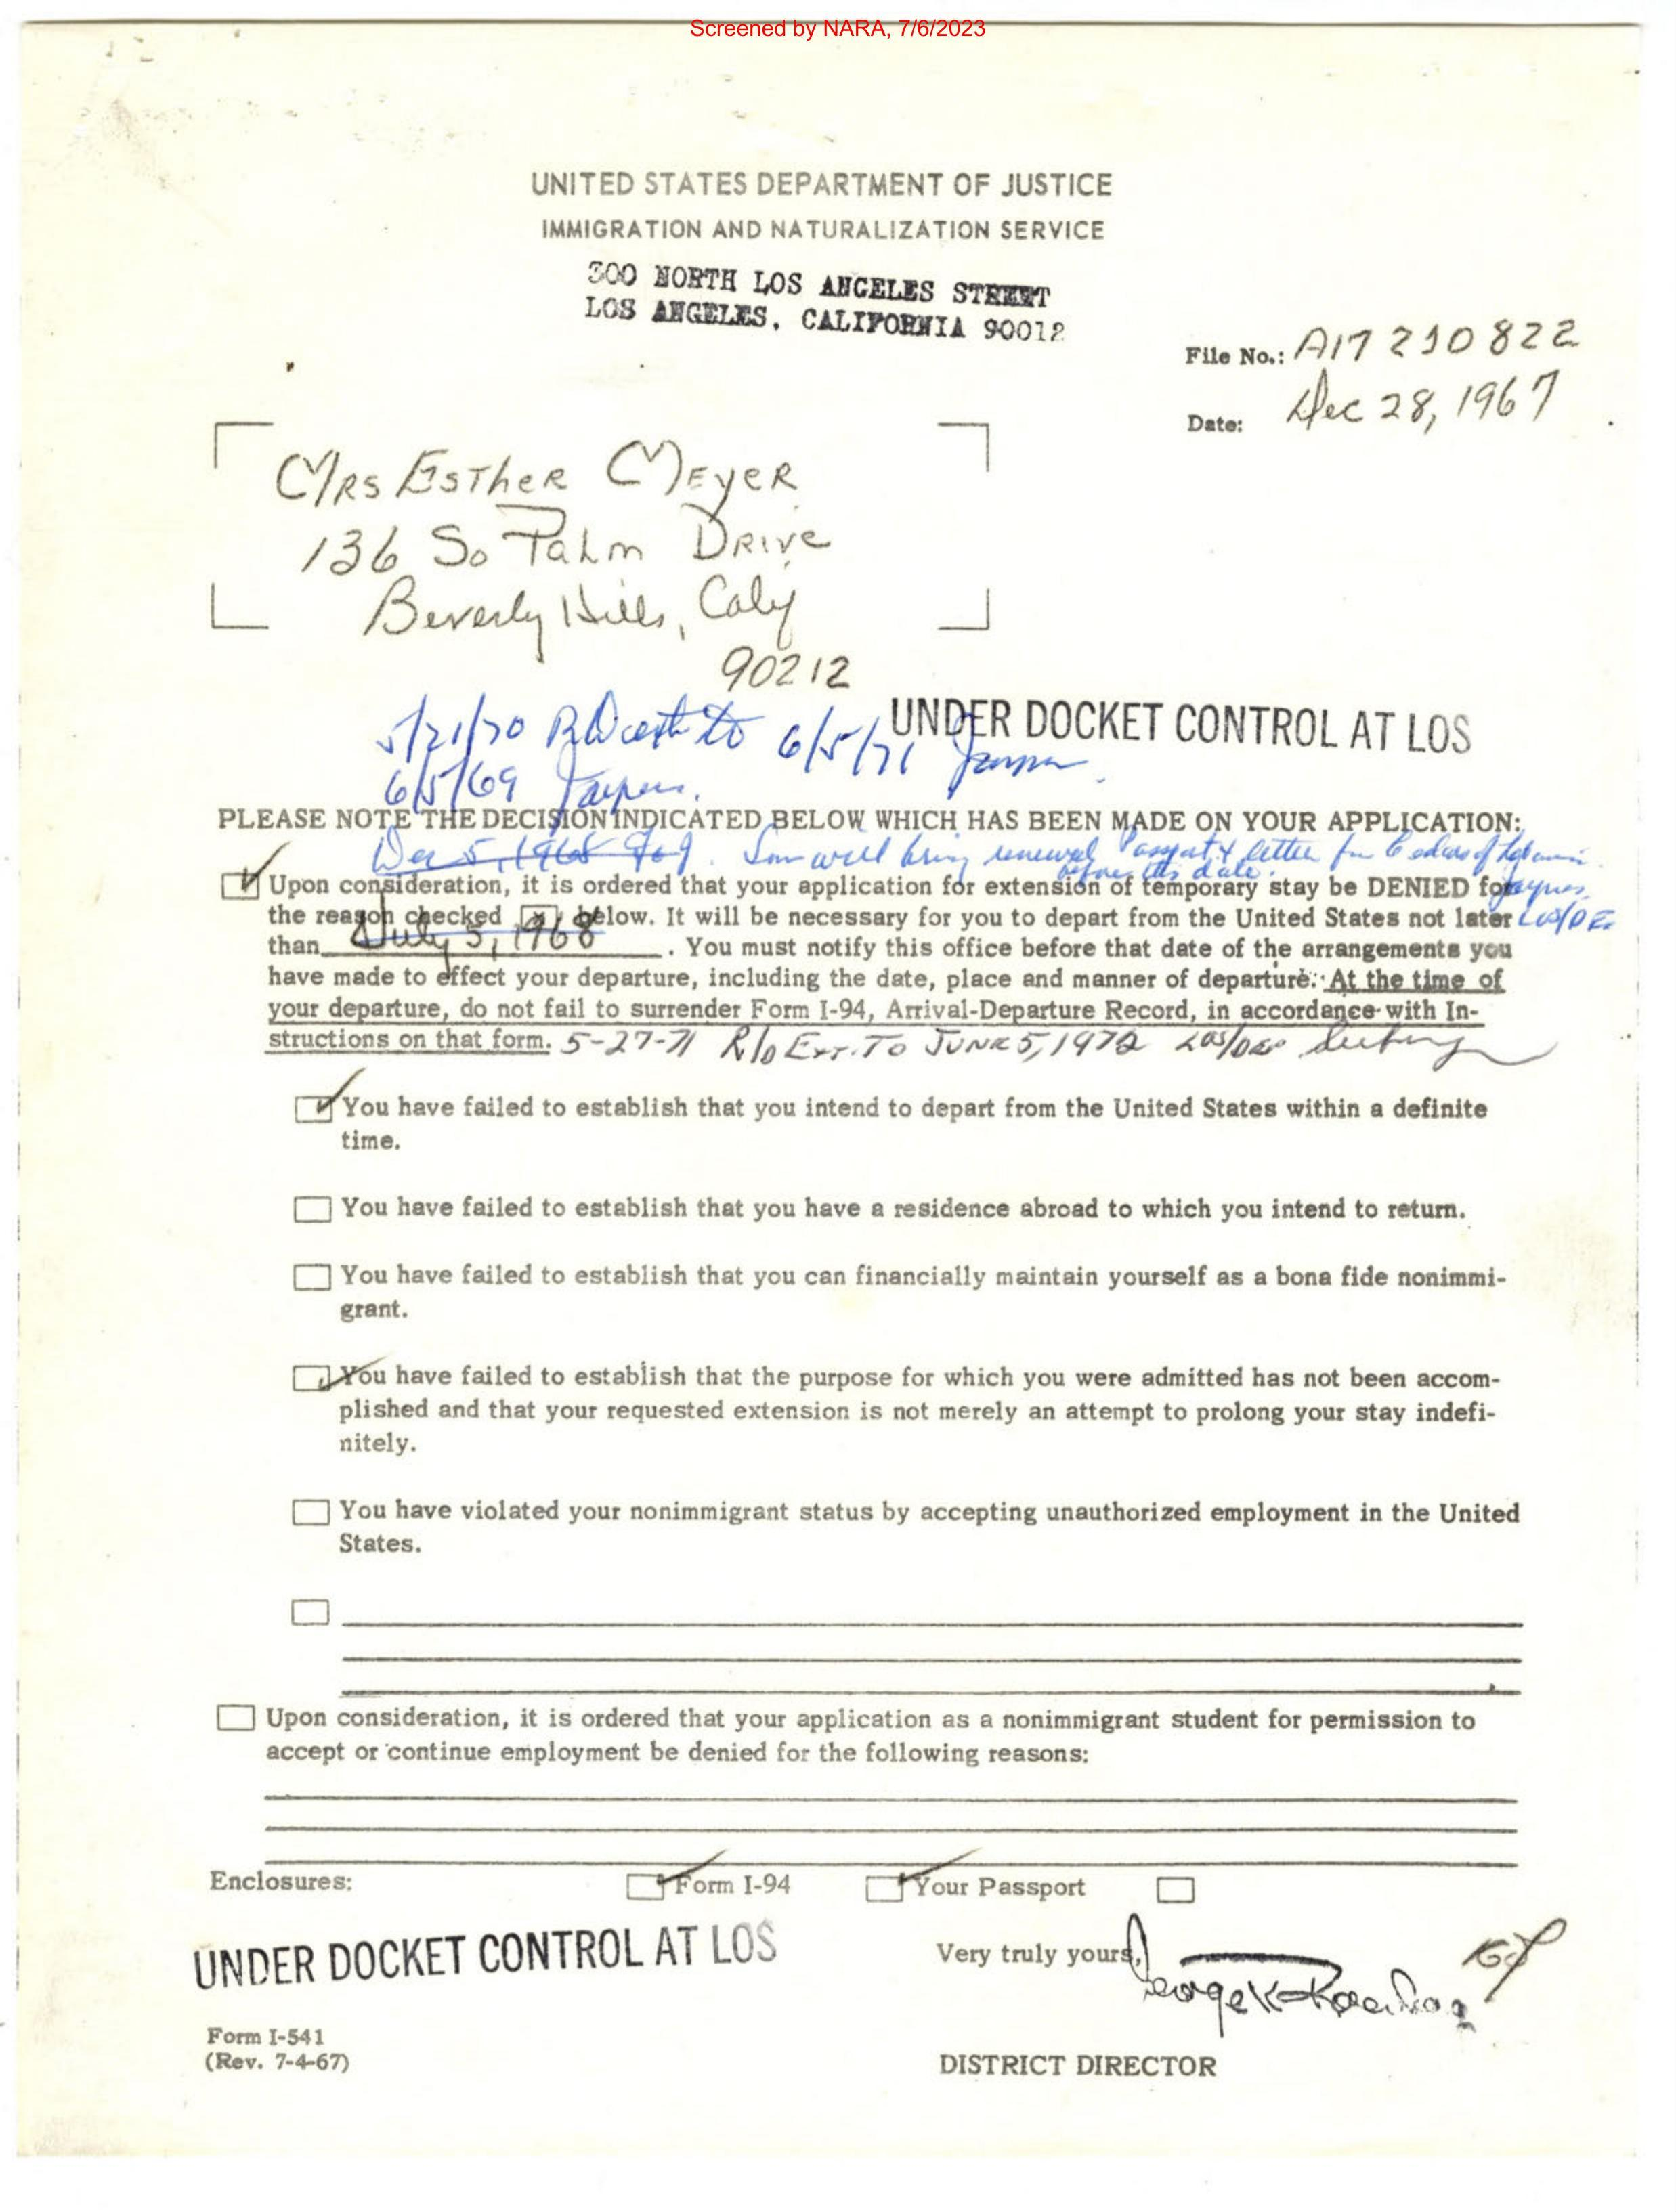 Screened by NARA, 7/6/2023
UNITED STATES DEPARTMENT OF JUSTICE
IMMIGRATION AND NATURALIZATION SERVICE
300 NORTH LOS ANGELES STREET
LOS ANGELES, CALIFORNIA 90012
File No.: A17 210 822
Date: Dec 28, 1967
Mrs Esther Meyer
136 So Palm Drive
Beverly Hills, Calif
90212
5/21/70 to 6/5/71
UNDER DOCKET CONTROL AT LOS
6/5/69
PLEASE NOTE THE DECISION INDICATED BELOW WHICH HAS BEEN MADE ON YOUR APPLICATION:
Dec 5, 1968 Son will bring renewed Passport & letter fm Cedars of Lebanon
before this date.
Upon consideration, it is ordered that your application for extension of temporary stay be DENIED for
the reason checked x below. It will be necessary for you to depart from the United States not later LOS/DE
than July 5, 1968. You must notify this office before that date of the arrangements you
have made to effect your departure, including the date, place and manner of departure. At the time of
your departure, do not fail to surrender Form I-94, Arrival-Departure Record, in accordance with In-
structions on that form. 5-27-71 R/D Ext. To June 5, 1972
You have failed to establish that you intend to depart from the United States within a definite
time.
You have failed to establish that you have a residence abroad to which you intend to return.
You have failed to establish that you can financially maintain yourself as a bona fide nonimmi-
grant.
You have failed to establish that the purpose for which you were admitted has not been accom-
plished and that your requested extension is not merely an attempt to prolong your stay indefi-
nitely.
You have violated your nonimmigrant status by accepting unauthorized employment in the United
States.
Upon consideration, it is ordered that your application as a nonimmigrant student for permission to
accept or continue employment be denied for the following reasons:
Enclosures: Form I-94 Your Passport
UNDER DOCKET CONTROL AT LOS
Very truly yours,
George K
Form I-541
(Rev. 7-4-67)
DISTRICT DIRECTOR